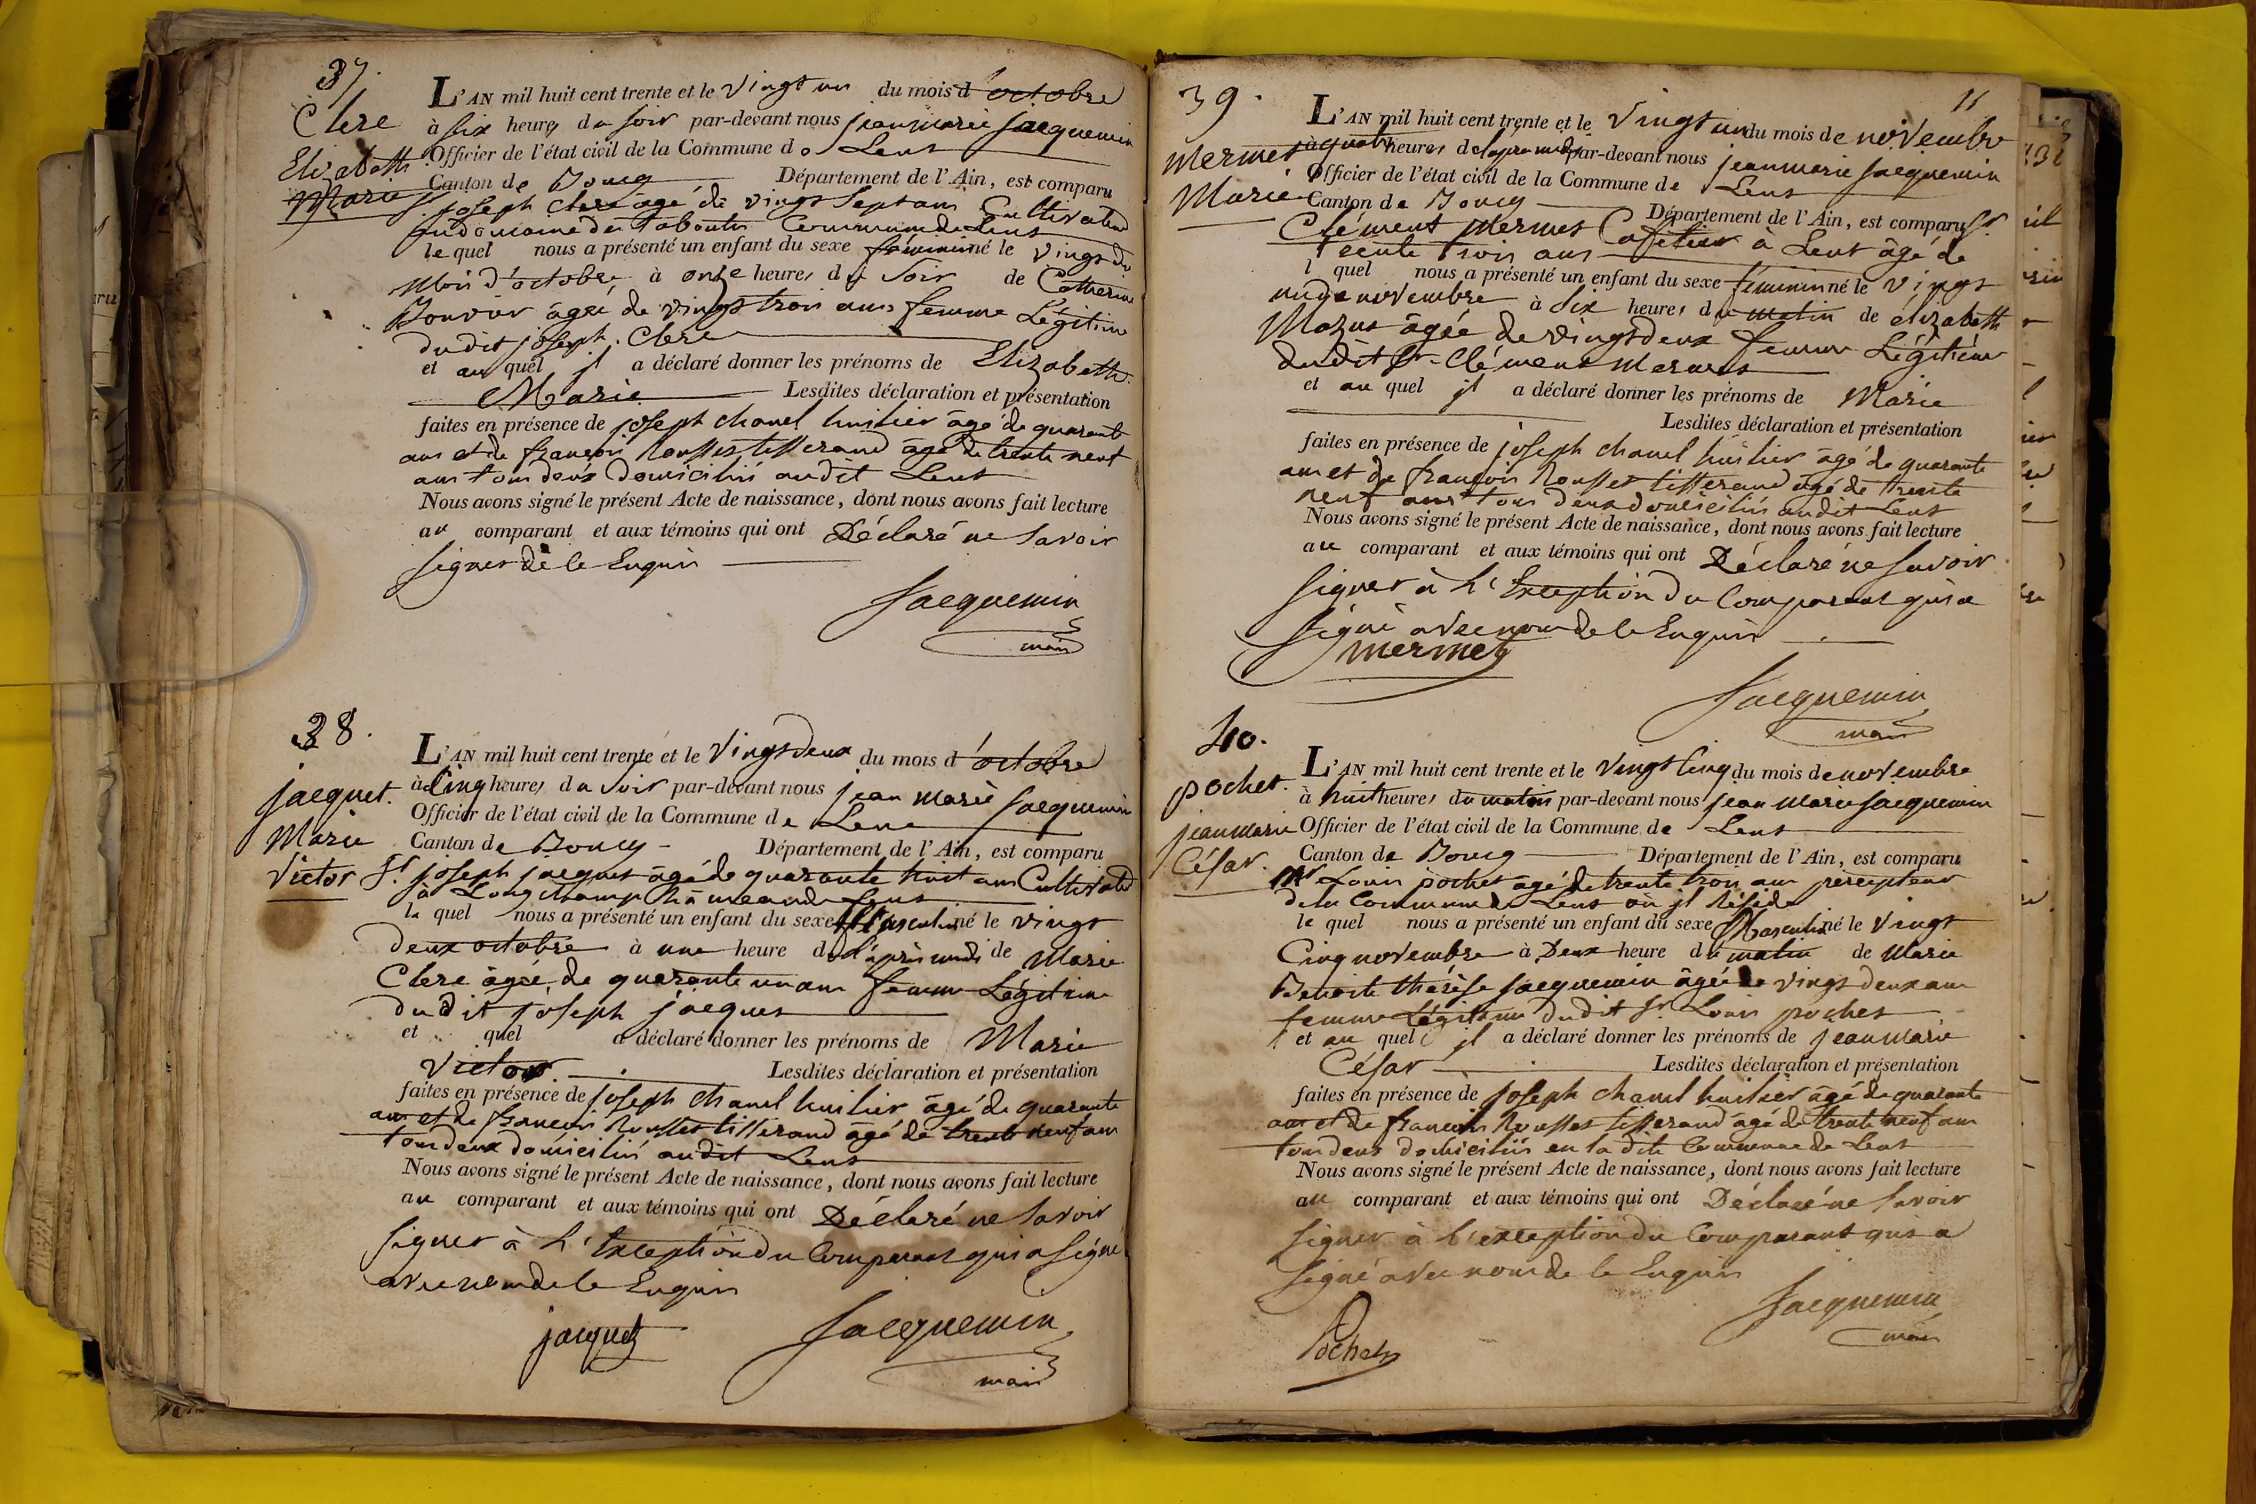 37.
Clere
Elizabeth
Marie
L'AN mil huit cent trente et le vingt un du mois d'octobre
à six heures du soir par-devant nous jean marie jacquemin
Officier de l'état civil de la Commune de Lent
Canton de Bourg Département de l'Ain, est comparu
joseph Clere agé de vingt sept ans Cultivateur
Commune de Lent
le quel nous a présenté un enfant du sexe féminin né le vingt du
mois d'octobre à onze heures du soir de Catherine
Bouvier âgée de vingt trois ans femme Légitime
dudit joseph Clere
et au quel il a déclaré donner les prénoms de Elizabeth
Marie Lesdites déclaration et présentation
faites en présence de joseph chanel huilier âgé de quarante
ans et de françois Rousset tisserand âgé de trente neuf
ans tous deux domiciliés audit Lent
Nous avons signé le présent Acte de naissance, dont nous avons fait lecture
au comparant et aux témoins qui ont Déclaré ne savoir
signer de le Enquis
Jacquemin
maire
38.
jacquet.
Marie
Victor
L'AN mil huit cent trente et le vingt deux du mois d'octobre
à Cinq heures du soir par-devant nous jean marie jacquemin
Officier de l'état civil de la Commune de Lent
Canton de Bourg Département de l'Ain, est comparu
Sr joseph jacquet âgé de quarante huit ans Cultivateur
à Longchamp hâmeau de Lent
le quel nous a présenté un enfant du sexe Masculin né le vingt
deux octobre à une heure de l'après midi de Marie
Clere âgée de quarante un ans femme Légitime
dudit joseph jacquet
et quel a déclaré donner les prénoms de Marie
Victor Lesdites déclaration et présentation
faites en présence de joseph chanel huilier âgé de quarante
ans et de françois Rousset tisserand âgé de trente neuf ans
tous deux domiciliés audit Lent
Nous avons signé le présent Acte de naissance, dont nous avons fait lecture
au comparant et aux témoins qui ont Déclaré ne savoir
signer à l'Exception du Comparant qui a signé
avec nous de le Enquis
jacquet
Jacquemin
maire
39.
11
Mermet
Marie
L'AN mil huit cent trente et le vingt un du mois de novembre
à quatre heures de l'après midi par-devant nous jean marie jacquemin
Officier de l'état civil de la Commune de Lent
Canton de Bourg Département de l'Ain, est comparu Sr
Clément Mermet Cafetier à Lent âgé de
trente trois ans
l quel nous a présenté un enfant du sexe féminin né le vingt
un de novembre à six heures du matin de élizabeth
Mazut âgée de vingt deux femme Légitime
dudit Sr Clément Mermet
et au quel il a déclaré donner les prénoms de Marie
Lesdites déclaration et présentation
faites en présence de joseph chanel huilier âgé de quarante
ans et de françois Rousset tisserand âgé de trente
neuf ans tous deux domiciliés audit Lent
Nous avons signé le présent Acte de naissance, dont nous avons fait lecture
au comparant et aux témoins qui ont Déclaré ne savoir
signer à l'Exception du Comparant qui a
signé avec nous de le Enquis
Mermet
Jacquemin
maire
40.
pochet.
jean marie
César.
L'AN mil huit cent trente et le vingt Cinq du mois de novembre
à huit heures du matin par-devant nous jean marie jacquemin
Officier de l'état civil de la Commune de Lent
Canton de Bourg Département de l'Ain, est comparu
Mr Louis pochet âgé de trente trois ans percepteur
de la Commune de Lent où il Réside
le quel nous a présenté un enfant du sexe Masculin né le vingt
Cinq novembre à Deux heure du matin de Marie
Benoite thérèse jacquemin âgée de vingt deux ans
femme Légitime dudit Sr Louis pochet
et au quel il a déclaré donner les prénoms de jean Marie
César Lesdites déclaration et présentation
faites en présence de joseph chanel huilier âgé de quarante
ans et de françois Rousset tisserand âgé de trente neuf ans
tous deux domiciliés en la dite Commune de Lent
Nous avons signé le présent Acte de naissance, dont nous avons fait lecture
au comparant et aux témoins qui ont Déclaré ne savoir
signer à l'exception du Comparant qui a
signé avec nous de le Enquis
Pochet
Jacquemin
maire